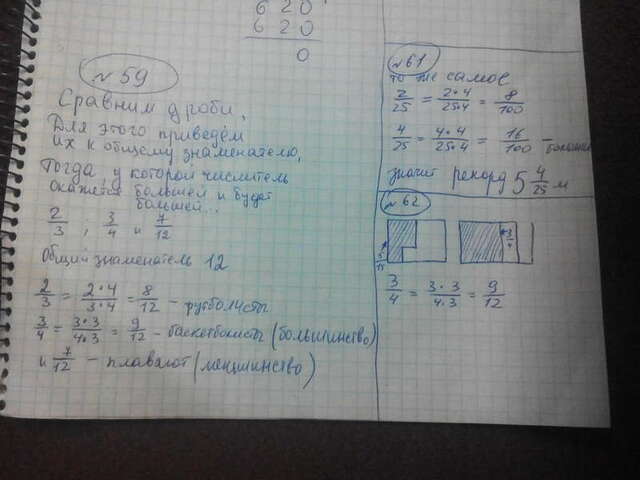 620
620
0
№ 59
Сравним дроби,
Для этого приведём
их к общему знаменателю,
Тогда, у которой числитель
окажется большей и будет
большей...
2/3 ; 3/4 и 7/12
Общий знаменатель 12
2/3 = 2*4/3*4 = 8/12 - футболисты
3/4 = 3*3/4*3 = 9/12 - баскетболисты (большинство)
и 7/12 - плавают (меншинство)
№61
то же самое
2/25 = 2*4/25*4 = 8/100
4/25 = 4*4/25*4 = 16/100 -
значит рекорд 5 4/25 м
№62
3/4 = 3*3/4*3 = 9/12